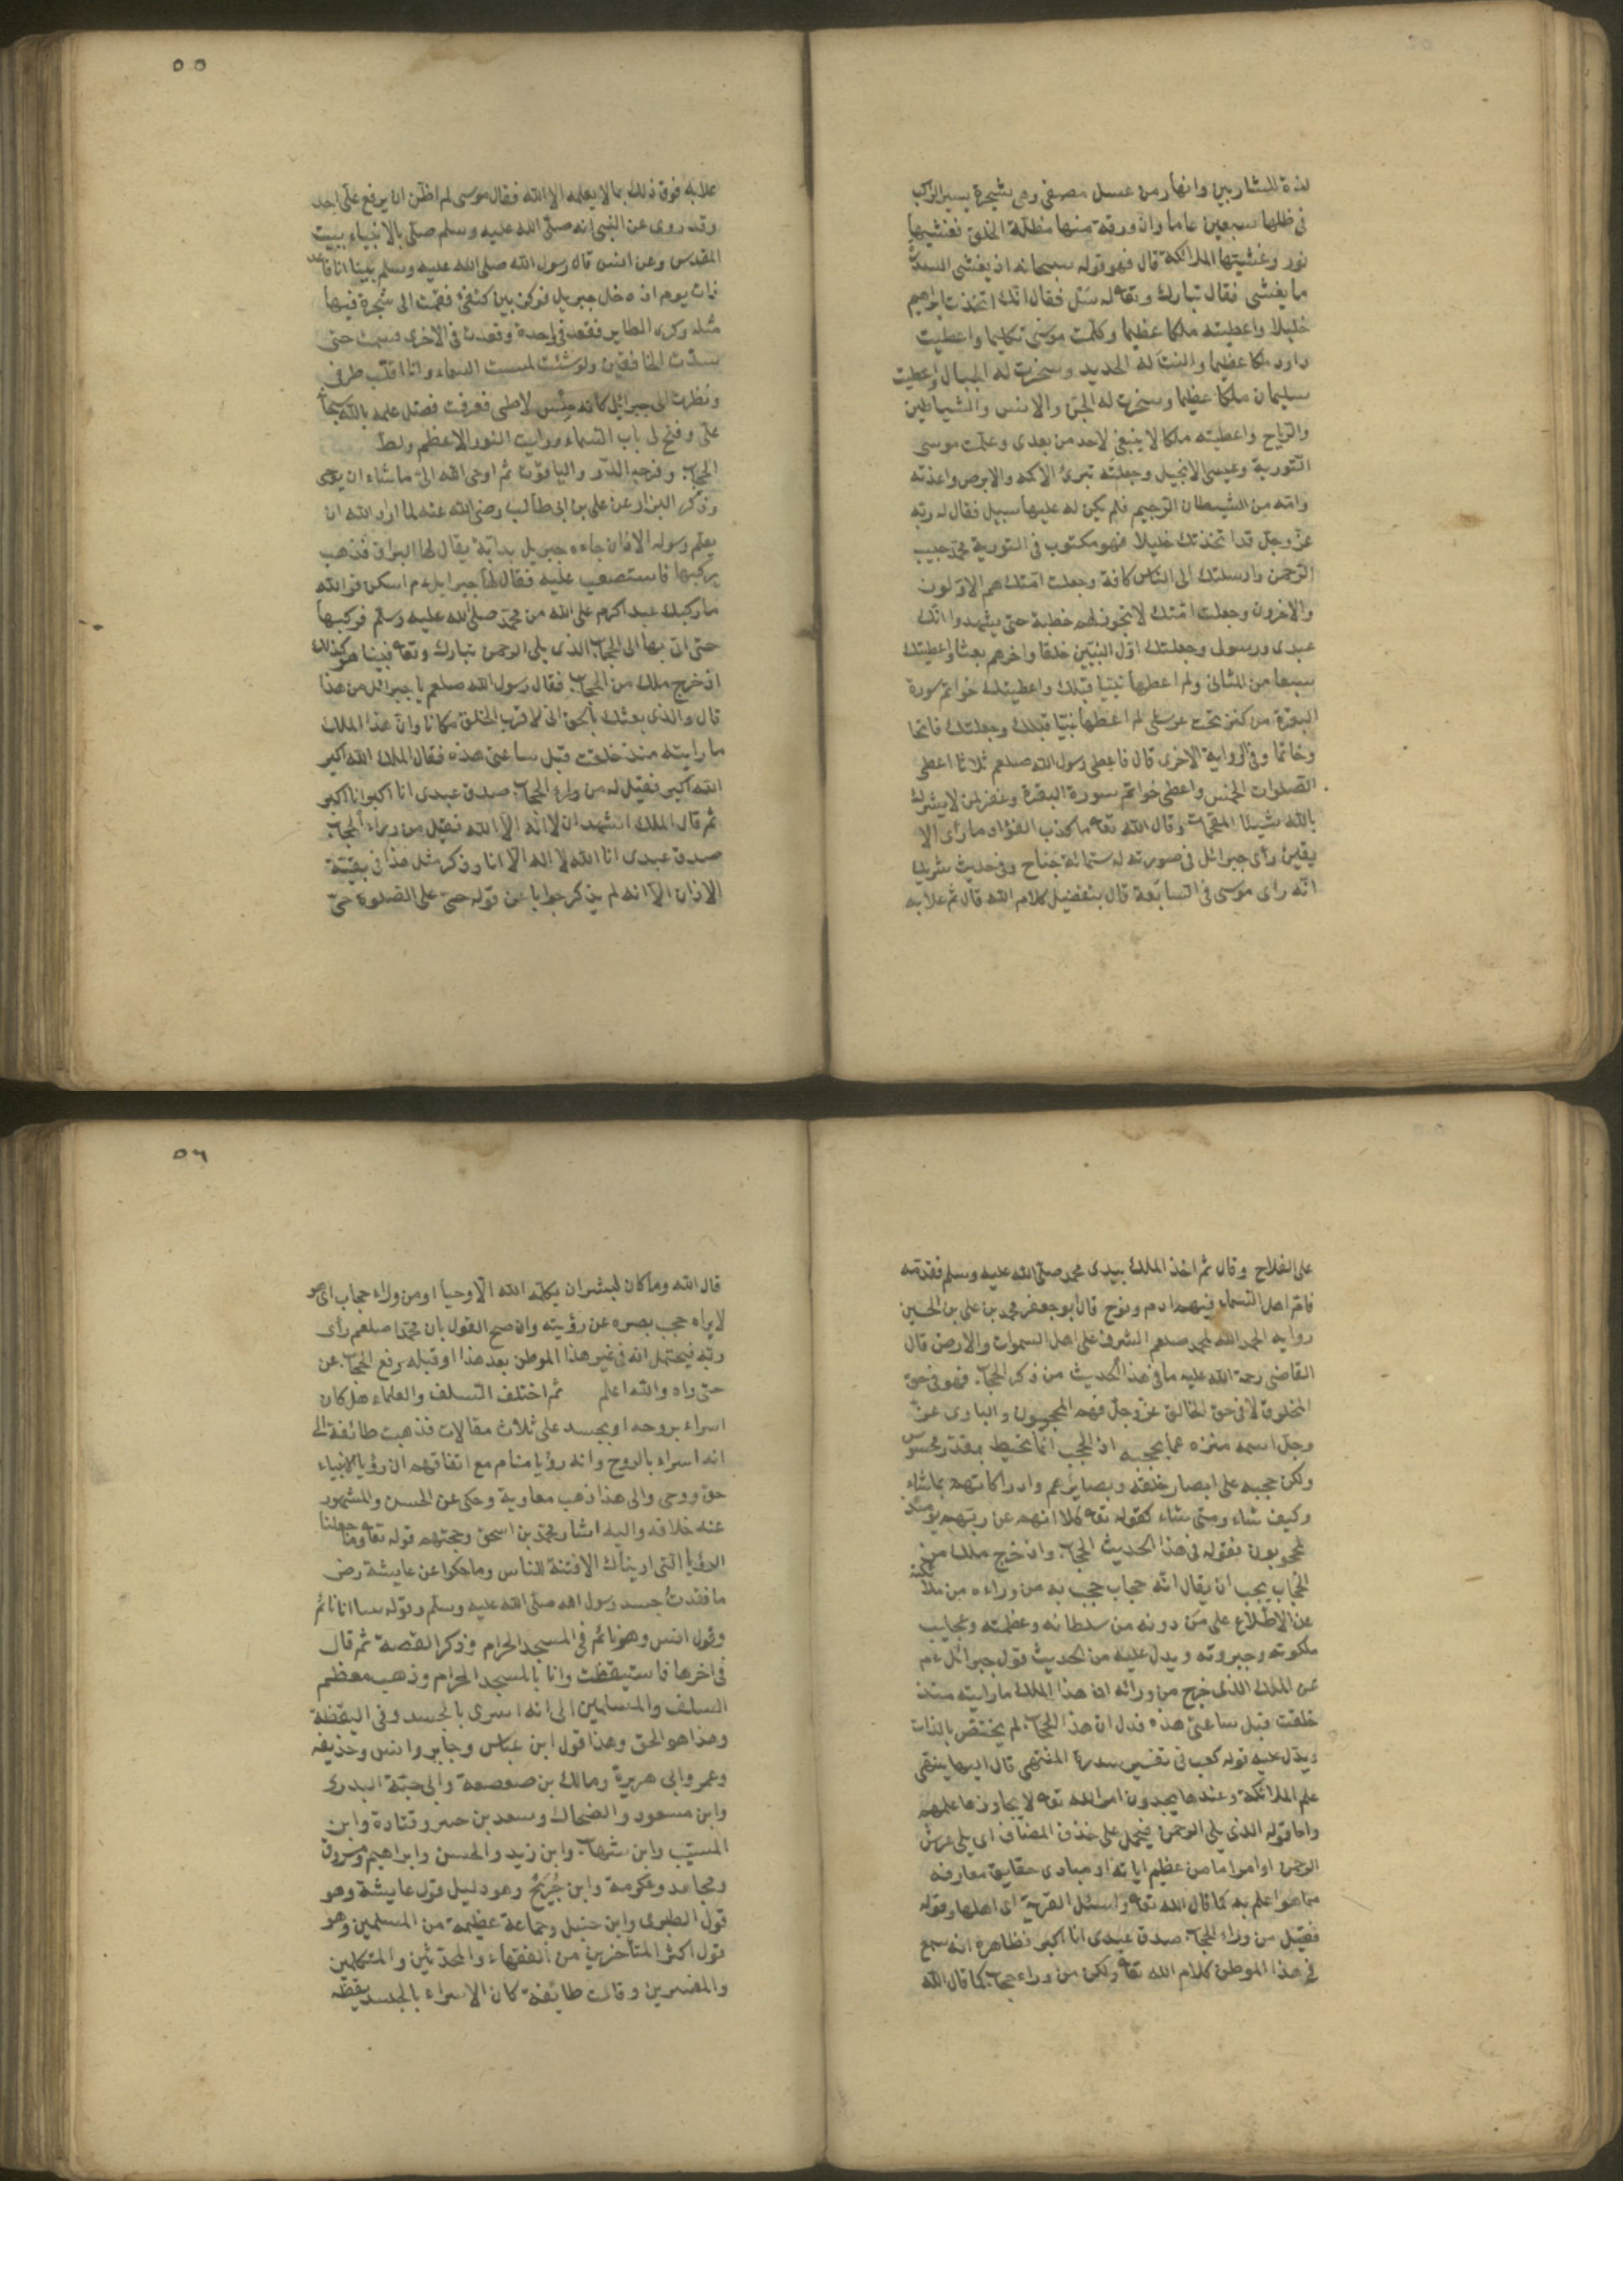 لذة للشاربين وانهار من عسل مصفى وهى شجرة يسير الراكب
فى ظلها سبعين عاما وان ورقة منها مظلة الخلق فغشيها
نور وغشيتها الملائكة قال فهو قوله سبحانه اذ يغشى السدرة
ما يغشى فقال تبارك وتعا له سل فقال انك اتخذت ابراهيم
خليلا واعطيته ملكا عظيما وكلمت موسى تكليما واعطيت
داود ملكا عظيما والنت له الحديد وسخرت له الجبال واعطيت
سليمان ملكا عظيما وسخرت له الجن والانس والشياطين
والرياح واعطيته ملكا لا ينبغى لاحد من بعدى وعلمت موسى
التورية وعيسى الانجيل وجعلته تبرئ الاكمه والابرص واعذته
وامه من الشيطان الرجيم فلم يكن له عليها سبيل فقال له ربه
عز وجل قد اتخذتك خليلا فهو مكتوب فى التورية محمد حبيب
الرحمن وارسلتك الى الناس كافة وجعلت امتك هم الاولون
والاخرون وجعلت امتك لا تجوز لهم خطبة حتى يشهدوا انك
عبدى ورسولى وجعلتك اول النبيين خلقا واخرهم بعثا واعطيتك
سبعا من المثانى ولم اعطها نبيا قبلك واعطيتك خواتم سورة
البقرة من كنز تحت عرشى لم اعطها نبيا قبلك وجعلتك فاتحا
وخاتما وفى الرواية الاخرى قال فاعطى رسول الله صلعم ثلاثا اعطى
الصلوات الخمس واعطى خواتم سورة البقرة وغفر لمن لا يشرك
بالله شيئا المقحمات وقال الله تعا ما كذب الفؤاد ما رأى الا
يقين رأى جبرائل فى صورته له ستمائة جناح وفى حديث شريك
انه راى موسى فى السابعة قال بتفضيل كلام الله قال ثم علا به
٥٥
علا به فوق ذلك بما لا يعلمه الا الله فقال موسى لم اظن ان يرفع على احد
وقد روى عن النبى انه صلى الله عليه وسلم صلى بالانبياء ببيت
المقدس وعن انس قال رسول الله صلى الله عليه وسلم بينا انا قاعد
ذات يوم اذ دخل جبريل فوكز بين كتفى فقمت الى شجرة فيها
مثل وكرى الطاير فقعد فى واحدة وقعدت فى الاخرى فنمت حتى
سدت الخافقين ولو شئت لمست السماء وانا اقلب طرفى
ونظرت الى جبرائيل كانه حلس لاطى فعرفت فضل علمه بالله
على وفتح لى باب السماء ورايت النور الاعظم ولط
الحجاب وفرجه الدر والياقوت ثم اوحى الله الى ما شاء ان يوحى
وذكر البزار عن على بن ابى طالب رضى الله عنه لما اراد الله ان
يعلم رسوله الاذان جاءه جبريل بدابة يقال لها البراق فذهب
يركبها فاستصعب عليه فقال لها جبرايل ع م اسكن فوالله
ما ركبك عبد اكرم على الله من محمد صلى الله عليه وسلم فركبها
حتى اتى بها الى الحجاب الذى يلى الرحمن تبارك وتعا فبينا هو كذلك
اذ خرج ملك من الحجاب فقال رسول الله صلعم يا جبرائل من هذا
قال والذى بعثك بالحق انى لاقرب الخلق مكانا وان هذا الملك
ما رايته منذ خلقت قبل ساعتى هذه فقال الملك الله اكبر
الله اكبر فقيل له من وراء الحجاب صدق عبدى انا اكبر انا اكبر
ثم قال الملك اشهد ان لا اله الا الله فقيل من وراء الحجاب
صدق عبدى انا الله لا اله الا انا وذكر مثل هذا فى بقية
الاذان الا انه لم يذكر جوابا عن قوله حى على الصلوة حى
على الفلاح وقال ثم اخذ الملك بيدى محمد صلى الله عليه وسلم فقدمه
فام اهل السماء فيهم ادم ونوح قال ابو جعفر محمد بن على بن الحسين
روايه الحمد الله لمحمد صلعم الشرف على اهل السموات والارض قال
القاضى رحمة الله عليه ما فى هذا الحديث من ذكر الحجاب فهو فى حق
المخلوق لا فى حق الخالق عز وجل فهم المحجوبون والبارى عز
وجل اسمه منزه عما يحجبه اذ الحجب انما تحيط بمقدر محسوس
ولكن حجبه على ابصار خلقه وبصايرهم وادراكاتهم بما شاء
وكيف شاء ومتى شاء كقوله تعا كلا انهم عن ربهم يومئذ
لمحجوبون فقوله فى هذا الحديث الحجاب واذ خرج ملك من
الحجاب يجب ان يقال انه حجاب حجب به من وراءه من ملائكته
عن الاطلاع على من دونه من سلطانه وعظمته وعجايب
ملكوته وجبروته ويدل عليه من الحديث قول جبرائل ع م
عن الملك الذى خرج من ورائه ان هذا الملك ما رايته منذ
خلقت قبل ساعتى هذه فدل ان هذا الحجاب لم يختص بالذات
ويدل عليه قوله كعب فى تفسير سدرة المنتهى قال اليها ينتهى
علم الملائكة وعندها يجدون امر الله تعا لا يجاوزها علمهم
واما قوله الذى يلى الرحمن فيحمل على حذف المضاف اى يلى عرش
الرحمن او امرا ما من عظيم اياته او مبادى حقايق معارفه
مما هو اعلم به كما قال الله تعا واسئل القرية اى اهلها وقوله
فقيل من وراء الحجاب صدق عبدى انا اكبر فظاهره انه سمع
فى هذا الموطن كلام الله تعا ولكن من وراء حجاب كما قال الله
٥٦
قال الله وما كان لبشر ان يكلمه الله الا وحيا او من وراء حجاب اى هو
لا يراه حجب بصره عن رؤيته وان صح القول بان محمدا صلعم رأى
ربه فيحتمل انه فى غير هذا الموطن بعد هذا او قبله رفع الحجاب عن
حتى راه والله اعلم ثم اختلف السلف والعلماء هل كان
اسراء بروحه او بجسد على ثلاث مقالات فذهبت طائفة الى
انه اسراء بالروح وانه رؤيا منام مع اتفاقهم ان رؤيا الانبياء
حق ووحى والى هذا ذهب معاوية وحكى عن الحسن والمشهور
عنه خلافه واليه اشار محمد بن اسحق وحجتهم قوله تعا وما جعلنا
الرؤيا التى اريناك الا فتنة للناس وما حكوا عن عايشة رض
ما فقدت جسد رسول الله صلى الله عليه وسلم وقوله بينا انا نائم
وقول انس وهو نائم فى المسجد الحرام وذكر القصة ثم قال
فى اخرها فاستيقظت وانا بالمسجد الحرام وذهب معظم
السلف والمسلمين الى انه اسرى بالجسد وفى اليقظة
وهذا هو الحق وهذا قول ابن عباس وجابر وانس وحذيفه
وعمر وابى هريرة ومالك بن صعصعة وابى حبة البدرى
وابن مسعود والضحاك وسعد بن جبير وقتادة وابن
المسيب وابن شهاب وابن زيد والحسن وابراهيم ومسروق
ومجاهد وعكرمة وابن جريج وهو دليل قول عايشة وهو
قول الطبرى وابن حنبل وجماعة عظيمة من المسلمين وهو
قول اكثر المتأخرين من الفقهاء والمحدثين والمتكلمين
والمفسرين وقالت طائفة كان الاسراء بالجسد يقظة